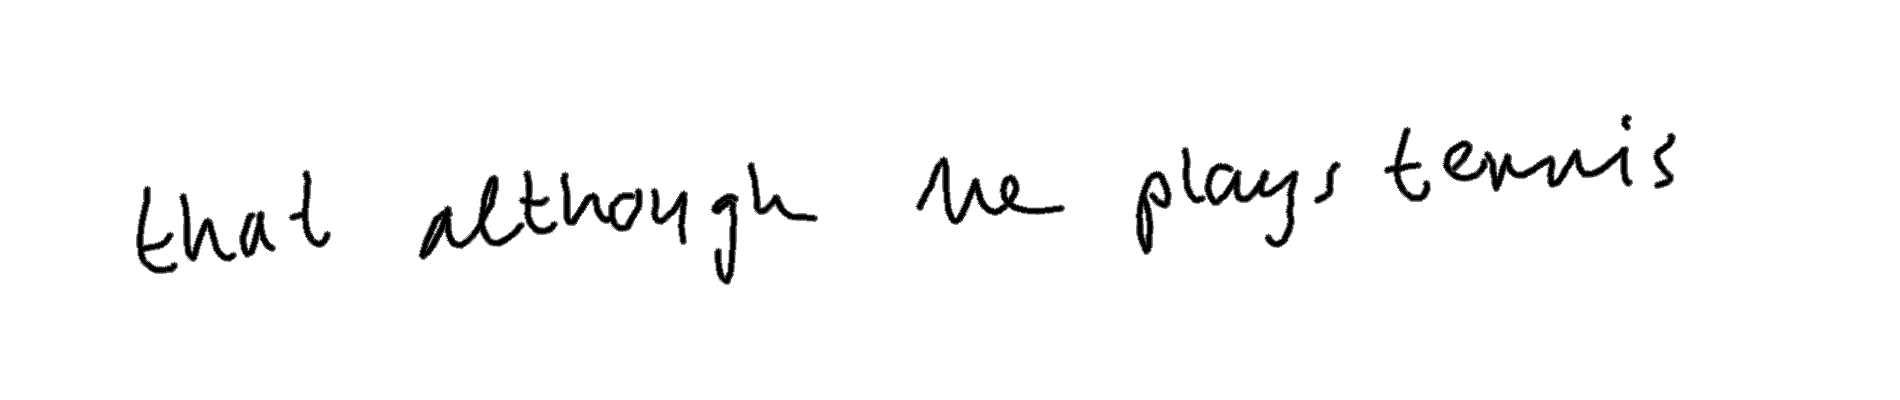 that although he plays tennis